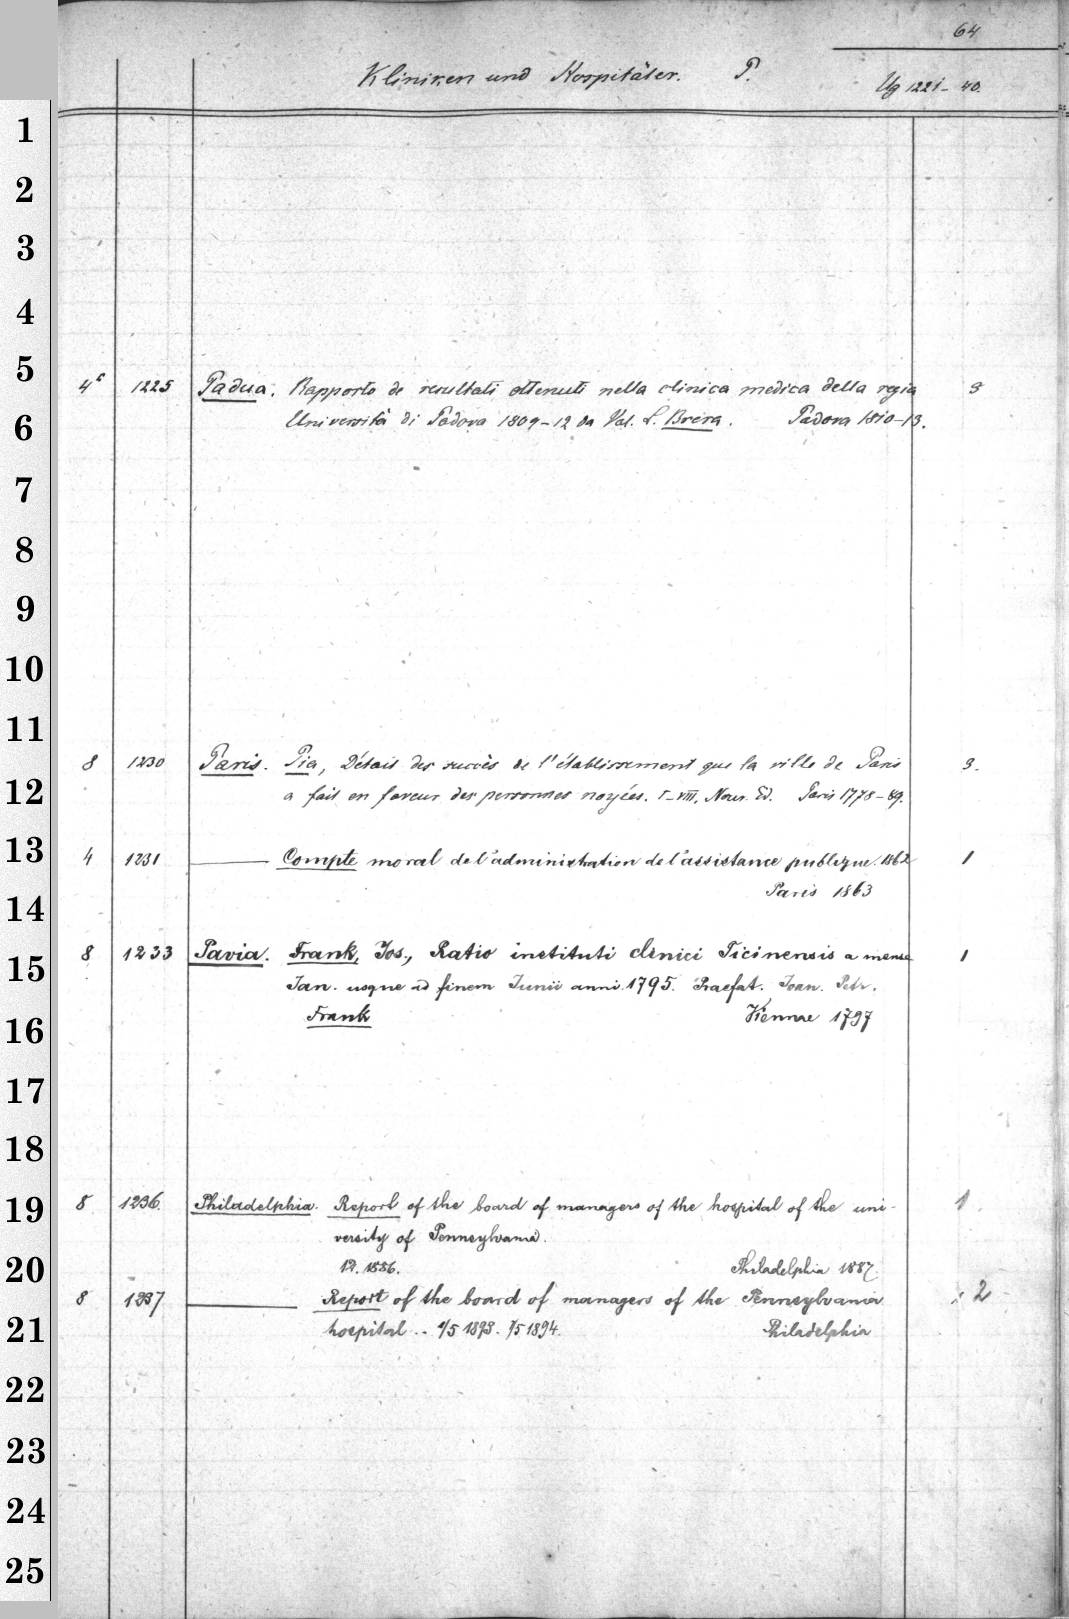 64
Kliniken und Hospitäler. P.
Ug 1221-40.
1
2
3
4
5
4° 1225 Padua. Rapporto de resultati ottenuti nella clinica medica della regia 3
6 Università di Padova 1809-12 da Val. L. Brera. Padova 1810-13.
7
8
9
10
11
8 1230 Paris. Pia, Détail des succès de l'établissement que la ville de Paris 3.
12 a fait en faveur des personnes noyées. I-VIII. Nouv. Ed. Paris 1778-89.
13 4 1231 ——— Compte moral de l'administration de l'assistance publique. 1862 1
14 Paris 1863
8 1233 Pavia. Frank, Jos., Ratio instituti clinici Ticinensis a mense 1
15
Jan. usque ad finem Junii anni 1795. Praefat. Joan. Petr.
16 Frank Viennae 1797
17
18
19 8 1236. Philadelphia. Report of the board of managers of the hospital of the uni- 1
versity of Pennsylvania.
20 12. 1886. Philadelphia 1887.
8 1237 ——— Report of the board of managers of the Pennsylvania 2
21 hospital .. 1/5 1893. 1/5 1894. Philadelphia
22
23
24
25